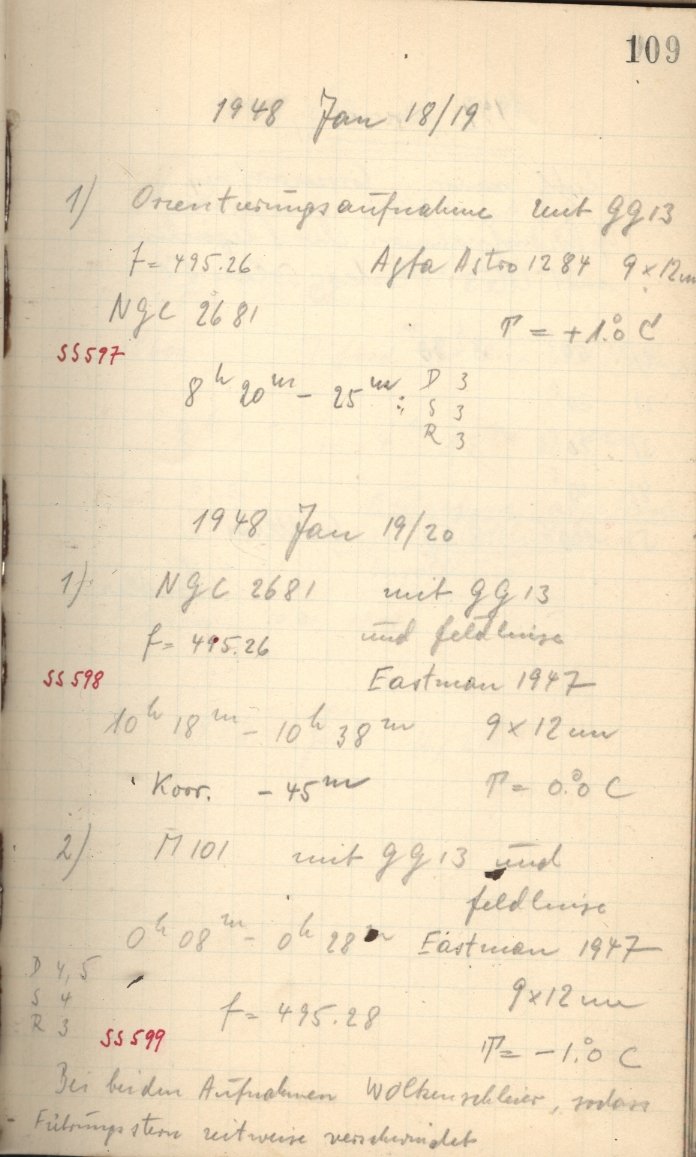 109
1948 Jan 18/19
1) Orientierungsaufnahme mit GG 13
f = 495.26 Agfa Astro 1284 9 x 12 cm
NGC 2681
T = +1.°0 C
SS597
8h 20m - 25m : D 3
S 3
R 3
1948 Jan 19/20
1) NGC 2681 mit GG 13
f = 495.26 und Feldlinse
SS598 Eastman 1947
10h 18m - 10h 38m 9 x 12 cm
Korr. - 45m T = 0.°0 C
2) M 101 mit GG 13 und
Feldlinse
0h 08m - 0h 28m Eastman 1947
D 4,5
S 4 9 x 12 cm
R 3 f = 495.28
SS599
T = - 1.°0 C
Bei beiden Aufnahmen Wolkenschleier, sodass
Führungsstern zeitweise verschwindet